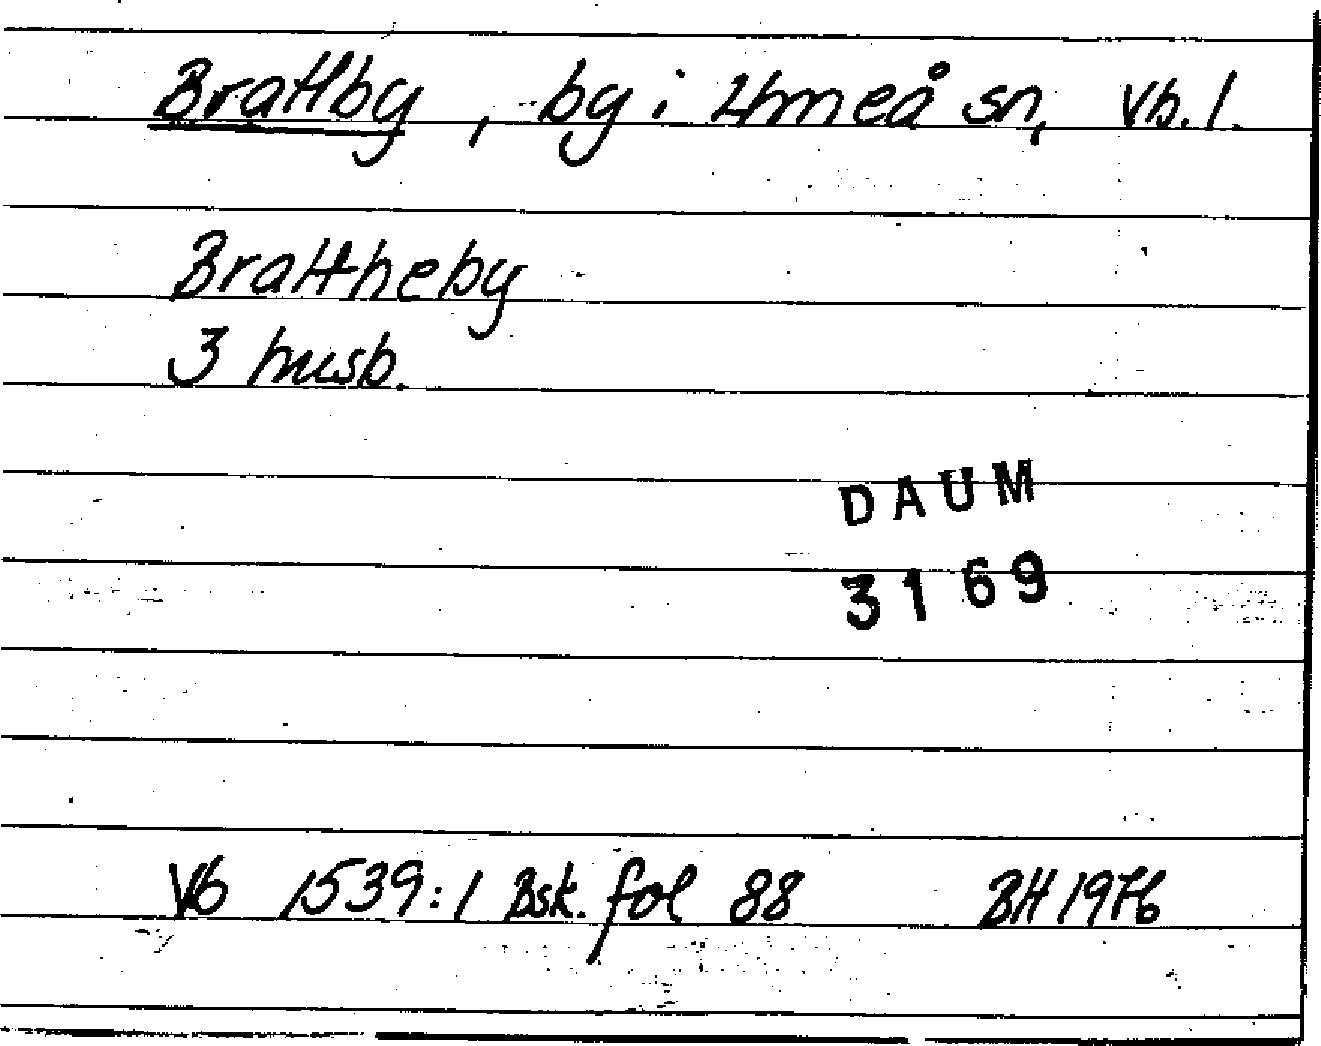 Brattby, by i Umeå sn, Vb. l.
Brattheby
3 husb.
DAUM
3169
Vb 1539:1 Bsk. fol 88 BH 1976